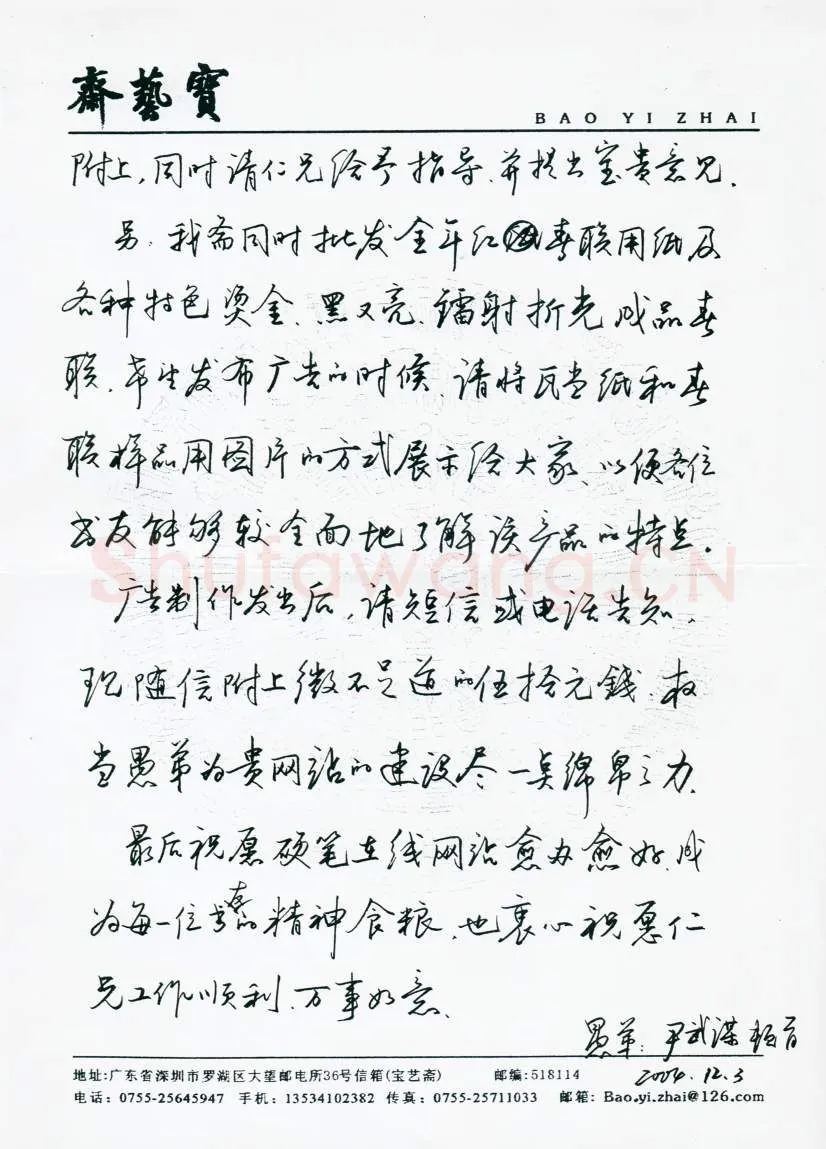 齋藝寳
BAO YI ZHAI
附上,同时请仁兄给予指导、并提出宝贵意见.
另,我斋同时批发全年红春联用纸及
各种特色烫金、黑又亮、镭射折光成品春
联、在发布广告的时候,请将瓦当纸和春
联样品用图片的方式展示给大家、以便各位
书友能够较全面地了解该产品的特点.
广告制作发出后,请短信或电话告知.
现随信附上微不足道的伍拾元錢、权
当愚弟为贵网站的建设尽一点绵帛之力.
最后祝愿硬笔在线网站愈办愈好,成
为每一位书友的精神食粮、也衷心祝愿仁
兄工作顺利、万事如意、
愚弟:尹武谋
2004.12.3
地址:广东省深圳市罗湖区大望邮电所36号信箱(宝艺斋) 邮编:518114
电话:0755-25645947 手机:13534102382 传真:0755-25711033 邮箱:Bao.yi.zhai@126.com
Shufawang.CN